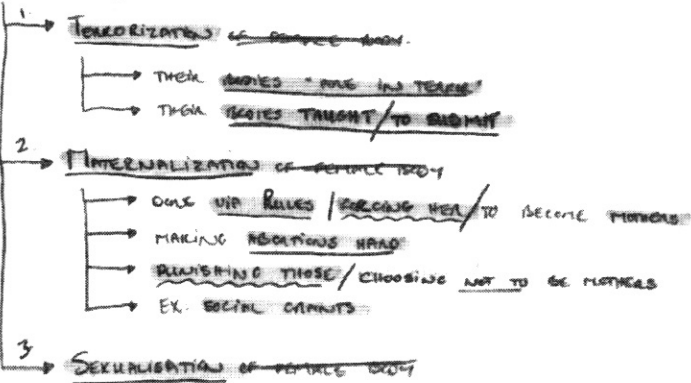 1. TERRORIZATION OF FEMALE BODY.
THEIR BODIES "ARE IN TERROR"
THEIR BODIES TAUGHT / TO SUBMIT
2 MATERNALIZATION OF FEMALE BODY
DONE VIA RULES / FORCING HER / TO BECOME MOTHERS
MAKING ABORTIONS HARD
PUNISHING THOSE / CHOOSING NOT TO BE MOTHERS
EX. SOCIAL GRANTS
3 SEXUALISATION OF FEMALE BODY